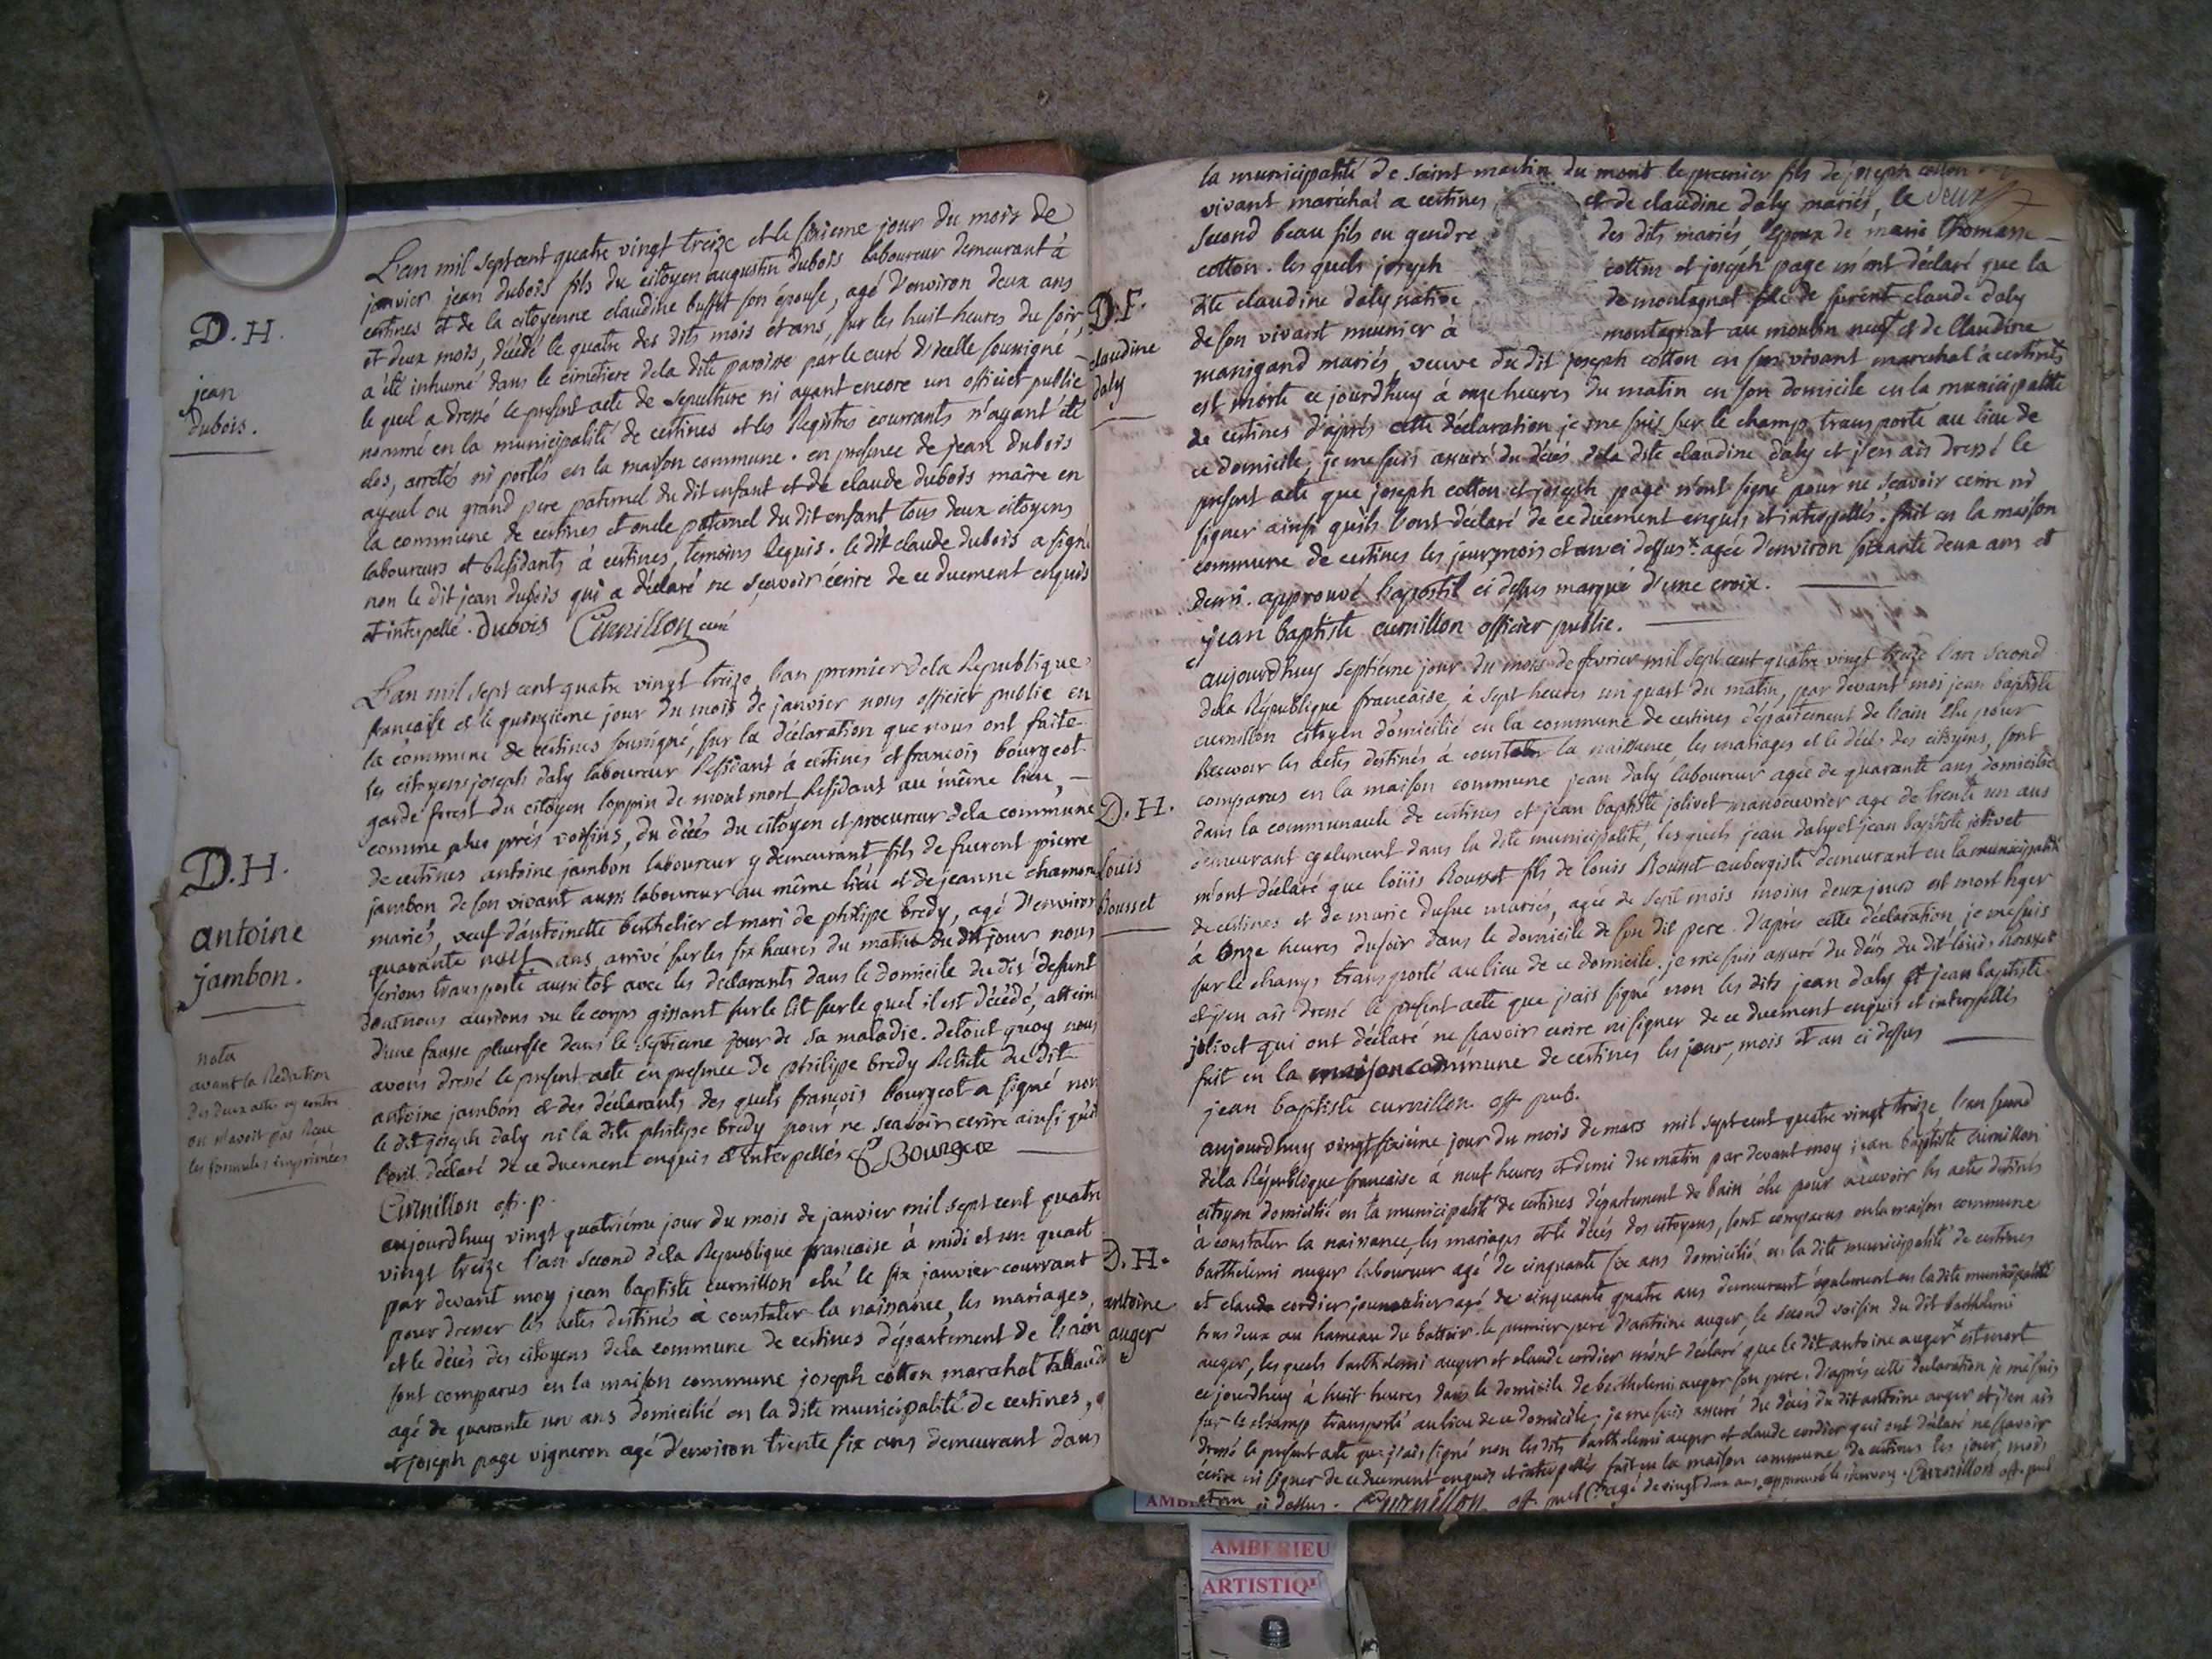 D.H.
jean
dubois.
L'an mil sept cent quatre vingt treize et le sixieme jour du mois de
janvier jean dubois fils du citoyen augustin dubois laboureur demeurant à
certines et de la citoyenne claudine buffet son épouse, agé d'environ deux ans
et deux mois, décédé le quatre des dits mois et ans, sur les huit heures du soir,
a été inhumé dans le cimetiere dela dite paroisse par le curé d'icelle soussigné,
le quel a dressé le présent acte de sepulture ni ayant encore un officier public
nommé en la municipalité de certines et les Registres courrants n'ayant été
clos, arretés ni portés en la maison commune. en presence de jean dubois
ayeul ou grand pere paternel du dit enfant et de claude dubois maire en
la commune de certines et oncle paternel du dit enfant tous deux citoyens
laboureurs et Residants à certines, temoins Requis. le dit claude dubois a signé
non le dit jean dubois qui a déclaré ne sçavoir écrire de ce duement enquis
et interpellé. Dubois Curnillon curé
D.H.
antoine
jambon.
nota
avant la Redaction
des deux actes cy contre
on n'avoit pas Reçu
les formules imprimées
L'an mil sept cent quatre vingt treize, l'an premier dela Republique
francaise et le quinzieme jour du mois de janvier nous officier public en
la commune de certines soussigné, sur la déclaration que nous ont faite
les citoyens joseph daly laboureur Residant à certines et francois bourgeot
garde forest du citoyen loppin de montmort Residant au même lieu,
comme plus près voisins, du décès du citoyen et procureur dela commune
de certines antoine jambon laboureur y demeurant fils de furent pierre
jambon de son vivant aussi laboureur au même lieu et de jeanne chamon
mariés, veuf d'antoinette berthelier et mari de philipe bredy, agé d'environ
quarante neuf ans, arrivé sur les six heures du matin du dit jour nous
serions transporté aussitot avec les declarants dans le domicile du dit defunt
dont nous aurions vu le corps gissant sur le lit sur le quel il est décédé, atteint
d'une fausse pleuresie dans le septieme jour de sa maladie. de tout quoy nous
avons dressé le present acte en presence de philipe bredy Relicte du dit
antoine jambon et des déclarants des quels françois bourgeot a signé non
le dit joseph daly ni la dite philipe bredy pour ne scavoir écrire ainsi qu'il
l'ont déclaré de ce duement enquis et interpellés F Bourgeot
Curnillon off. p.
aujourdhuy vingt quatriéme jour du mois de janvier mil sept cent quatre
vingt treize l'an second dela Republique francaise à midi et un quart
par devant moy jean baptiste curnillon elu le six janvier courrant
pour dresser les actes destinés à constater la naissance, les mariages,
et le décès des citoyens dela commune de certines département de l'ain
sont comparus en la maison commune joseph cotton marechal
agé de quarante un ans domicilié en la dite municipalité de certines,
et joseph page vigneron agé d'environ trente six ans demeurant dans
D.F.
claudine
daly
la municipalité de saint martin du mont le premier fils de joseph cotton
vivant maréchal a certines et de claudine daly mariés, le
second beau fils ou gendre des dits mariés époux de marie thomasse
cotton. les quels joseph cotton et joseph page m'ont déclaré que la
dite claudine daly native de montagnat fille de furent claude daly
de son vivant meunier à montagnat au moulin neuf et de claudine
manigand mariés, veuve du dit joseph cotton en son vivant marechal à certines
est morte ce jourdhuy à onze heures du matin en son domicile en la municipalité
de certines d'après cette déclaration je me suis sur le champ transporté au lieu de
ce domicile, je me suis assuré du décés dela dite claudine daly et j'en ais dressé le
présent acte que joseph cotton et joseph page n'ont signé pour ne sçavoir écrire ni
signer ainsi qu'ils l'ont déclaré de ce duement enquis et interpellés. fait en la maison
commune de certines les jour, mois et an ci dessus x agée d'environ soixante deux ans et
demi. approuvé l'apostil ci dessus marqué d'une croix.
jean baptiste curnillon officier public.
D.H.
Louis
Rousset
aujourdhuy septiéme jour du mois de fevrier mil sept cent quatre vingt treize l'an second
dela République francaise, à sept heures un quart du matin, par devant moi jean baptiste
curnillon citoyen domicilié en la commune de certines département de l'ain élu pour
Recevoir les actes destinés à constater la naissance les mariages et le décès des citoyens, sont
comparus en la maison commune jean daly laboureur agée de quarante ans domicilié
dans la communauté de certines et jean baptiste jolivet manoeuvrier agé de trente un ans
demeurant egalement dans la dite municipalité, les quels jean daly et jean baptiste jolivet
m'ont déclaré que loüis Rousset fils de louis Rousset aubergiste demeurant en la municipalité
de certines et de marie dufue mariés, agée de sept mois moins deux jours est mort hyer
à onze heures du soir dans le domicile de son dit pere. d'après cette déclaration je me suis
sur le champ transporté au lieu de ce domicile, je me suis assuré du décès du dit loüis Rousset
et j'en ais dressé le présent acte que j'ais signé non les dits jean daly et jean baptiste
jolivet qui ont déclaré ne scavoir écrire ni signer de ce duement enquis et interpellés
fait en la maison commune de certines les jour, mois et an ci dessus
jean baptiste curnillon off. pub.
D.H.
antoine
auger
aujourdhuy vingt sixiéme jour du mois de mars mil sept cent quatre vingt treize, l'an second
dela République francaise à neuf heures et demi du matin par devant moy jean baptiste curnillon
citoyen domicilié en la municipalité de certines département de l'ain élu pour recevoir les actes destinés
à constater la naissance, les mariages et le décès des citoyens, sont comparus en la maison commune
barthelemi auger laboureur agé de cinquante six ans domicilié en la dite municipalité de certines
et claude cordier journalier agé de cinquante quatre ans demeurant également en la dite municipalité
tous deux au hameau du battoir. le premier pere d'antoine auger, le second voisin du dit barthelemi
auger, les quels barthelemi auger et claude cordier m'ont déclaré que le dit antoine auger x est mort
ce jourdhuy à huit heures dans le domicile de barthelemi auger son pere. d'après cette declaration je me suis
sur le champ transporté au lieu de ce domicile, je me suis assuré du décès du dit antoine auger et j'en ais
dressé le present acte que j'ais signé non les dits barthelemi auger et claude cordier qui ont déclaré ne scavoir
écrire ni signer de ce duement enquis et interpellés fait en la maison commune de certines les jour, mois
et an ci dessus. Curnillon off. publ. x agé de vingt deux ans, approuvé le renvoy. Curnillon off. pub
AMBERIEU
ARTISTIQ